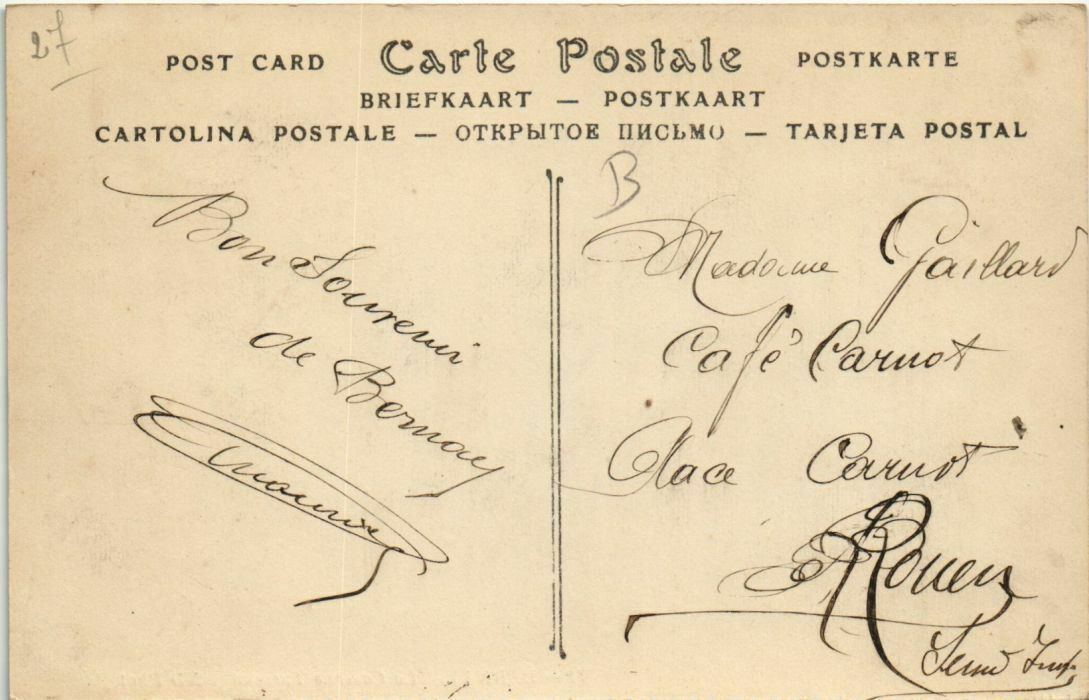 27
POST CARD Carte Postale POSTKARTE
BRIEFKAART — POSTKAART
CARTOLINA POSTALE — ОТКРЫТОЕ ПИСЬМО — TARJETA POSTAL
B
Bon Souvenir
de Bernay
Madame Gaillard
Café Carnot
Place Carnot
Rouen
Seine Inf